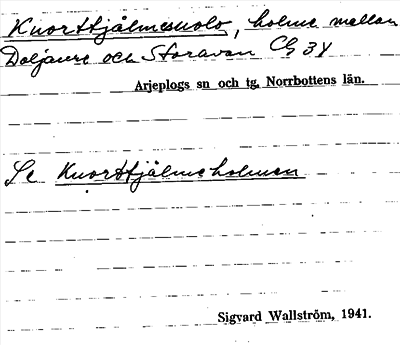 Knorttjålmesuolo, holme mellan
Doljaure och Storavan Cg 34
Arjeplogs sn och tg. Norrbottens län.
Se Knorttjålmeholmen
Sigvard Wallström, 1941.